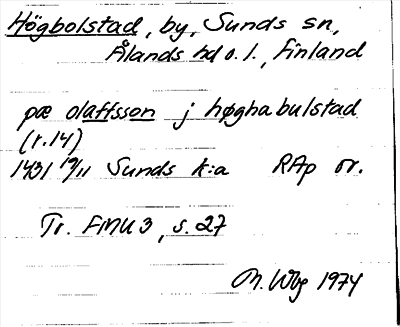 Högbolstad, by, Sunds sn,
Ålands hd o. l., Finland
pæ olaffsson j høghabulstad
(r.14)
1431 19/11 Sunds k:a RAp or.
Tr. FMU 3, s. 27
M. Wbg 1974